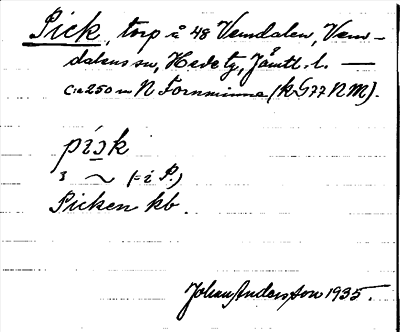 Pick, torp å 48 Vemdalen, Vem-
dalens sn, Hede tg, Jämtl. l. —
c:a 250 m N Fornminne (kG77 NM).
pìsk
i ~ (= i P.)
Picken kb.
Johan Andersson 1935.